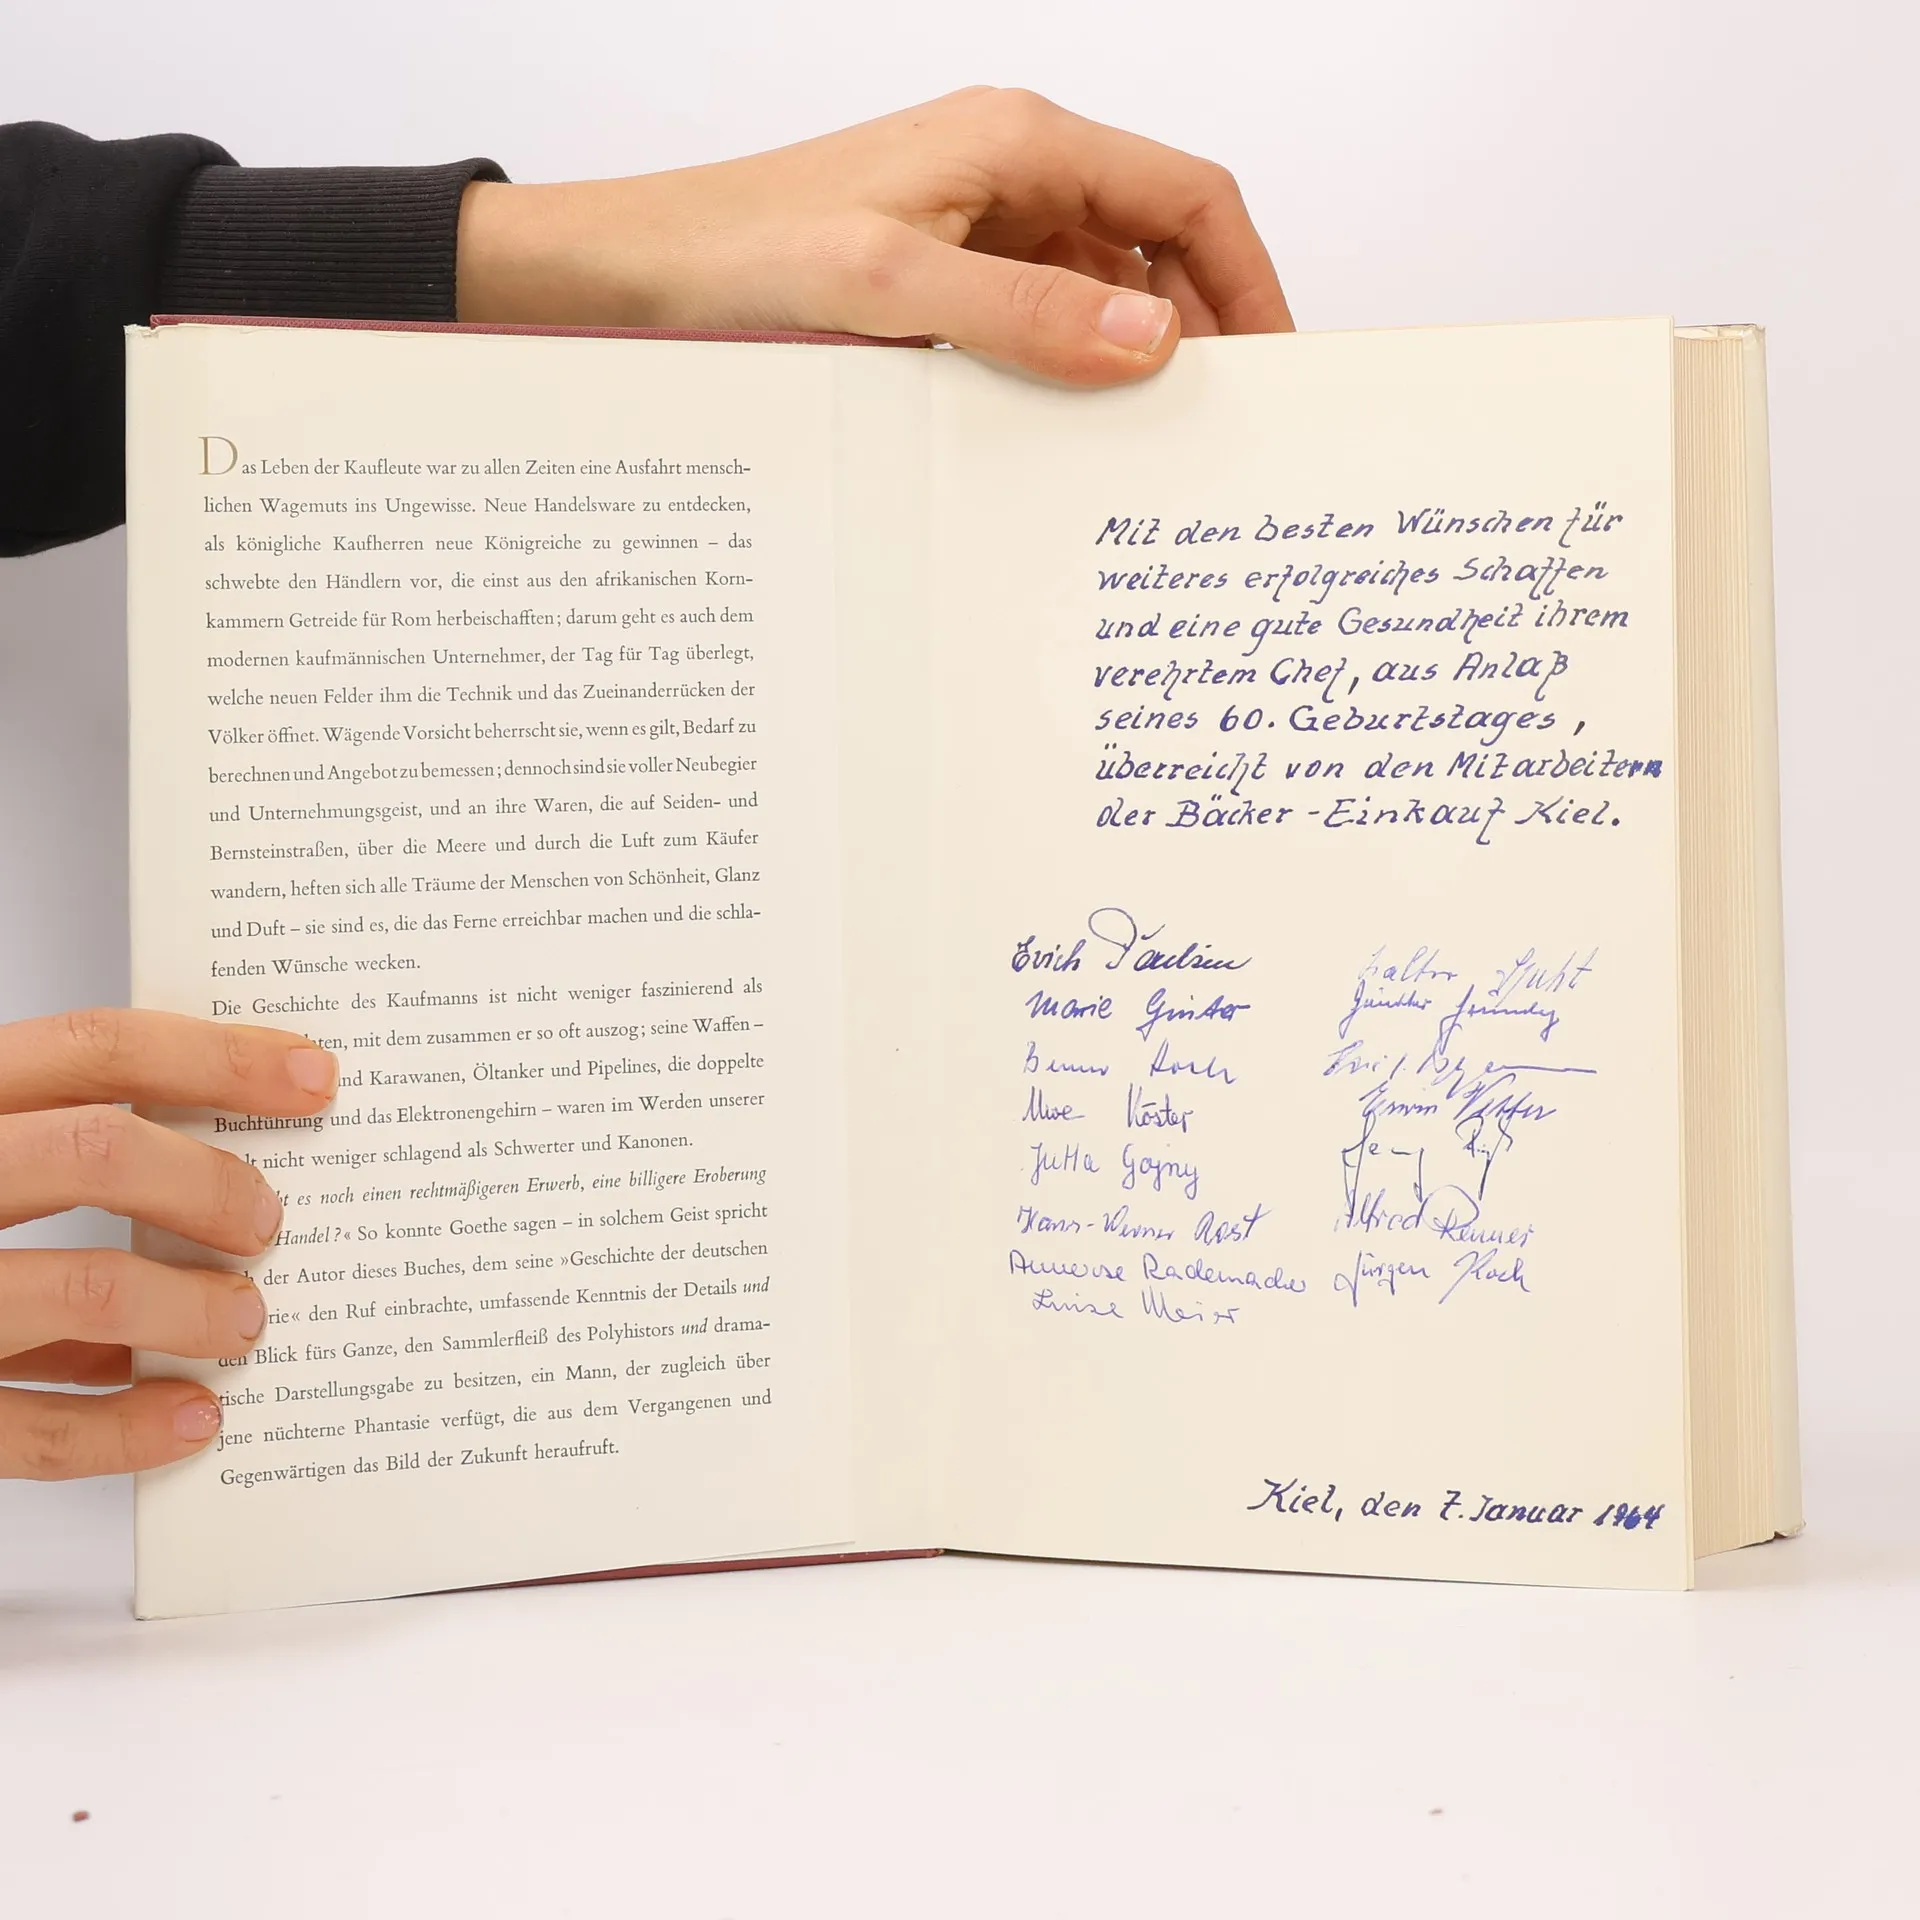 Das Leben der Kaufleute war zu allen Zeiten eine Ausfahrt mensch-
lichen Wagemuts ins Ungewisse. Neue Handelsware zu entdecken,
als königliche Kaufherren neue Königreiche zu gewinnen – das
schwebte den Händlern vor, die einst aus den afrikanischen Korn-
kammern Getreide für Rom herbeischafften; darum geht es auch dem
modernen kaufmännischen Unternehmer, der Tag für Tag überlegt,
welche neuen Felder ihm die Technik und das Zueinanderrücken der
Völker öffnet. Wägende Vorsicht beherrscht sie, wenn es gilt, Bedarf zu
berechnen und Angebot zu bemessen; dennoch sind sie voller Neubegier
und Unternehmungsgeist, und an ihre Waren, die auf Seiden- und
Bernsteinstraßen, über die Meere und durch die Luft zum Käufer
wandern, heften sich alle Träume der Menschen von Schönheit, Glanz
und Duft – sie sind es, die das Ferne erreichbar machen und die schla-
fenden Wünsche wecken.
Die Geschichte des Kaufmanns ist nicht weniger faszinierend als
mit dem zusammen er so oft auszog; seine Waffen –
und Karawanen, Öltanker und Pipelines, die doppelte
Buchführung und das Elektronengehirn – waren im Werden unserer
nicht weniger schlagend als Schwerter und Kanonen.
es noch einen rechtmäßigeren Erwerb, eine billigere Eroberung
Handel?« So konnte Goethe sagen – in solchem Geist spricht
der Autor dieses Buches, dem seine »Geschichte der deutschen
den Ruf einbrachte, umfassende Kenntnis der Details und
den Blick fürs Ganze, den Sammlerfleiß des Polyhistors und drama-
tische Darstellungsgabe zu besitzen, ein Mann, der zugleich über
jene nüchterne Phantasie verfügt, die aus dem Vergangenen und
Gegenwärtigen das Bild der Zukunft heraufruft.
Mit den besten Wünschen für
weiteres erfolgreiches Schaffen
und eine gute Gesundheit ihrem
verehrtem Chef, aus Anlaß
seines 60. Geburtstages,
überreicht von den Mitarbeitern
der Bäcker-Einkauf Kiel.
Erich Paulsen
Marie Ginter
Benno Koch
Uwe Köster
Jutta Gojny
Hans-Werner Rost
Annerose Rademacher
Luise Meier
Walter
Günther
Erwin
Alfred Renner
Jürgen Koch
Kiel, den 7. Januar 1964